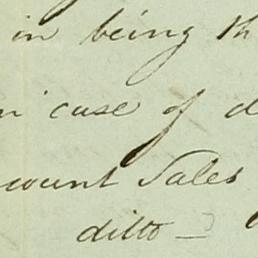 in being th
in case of d
count Sales
ditto